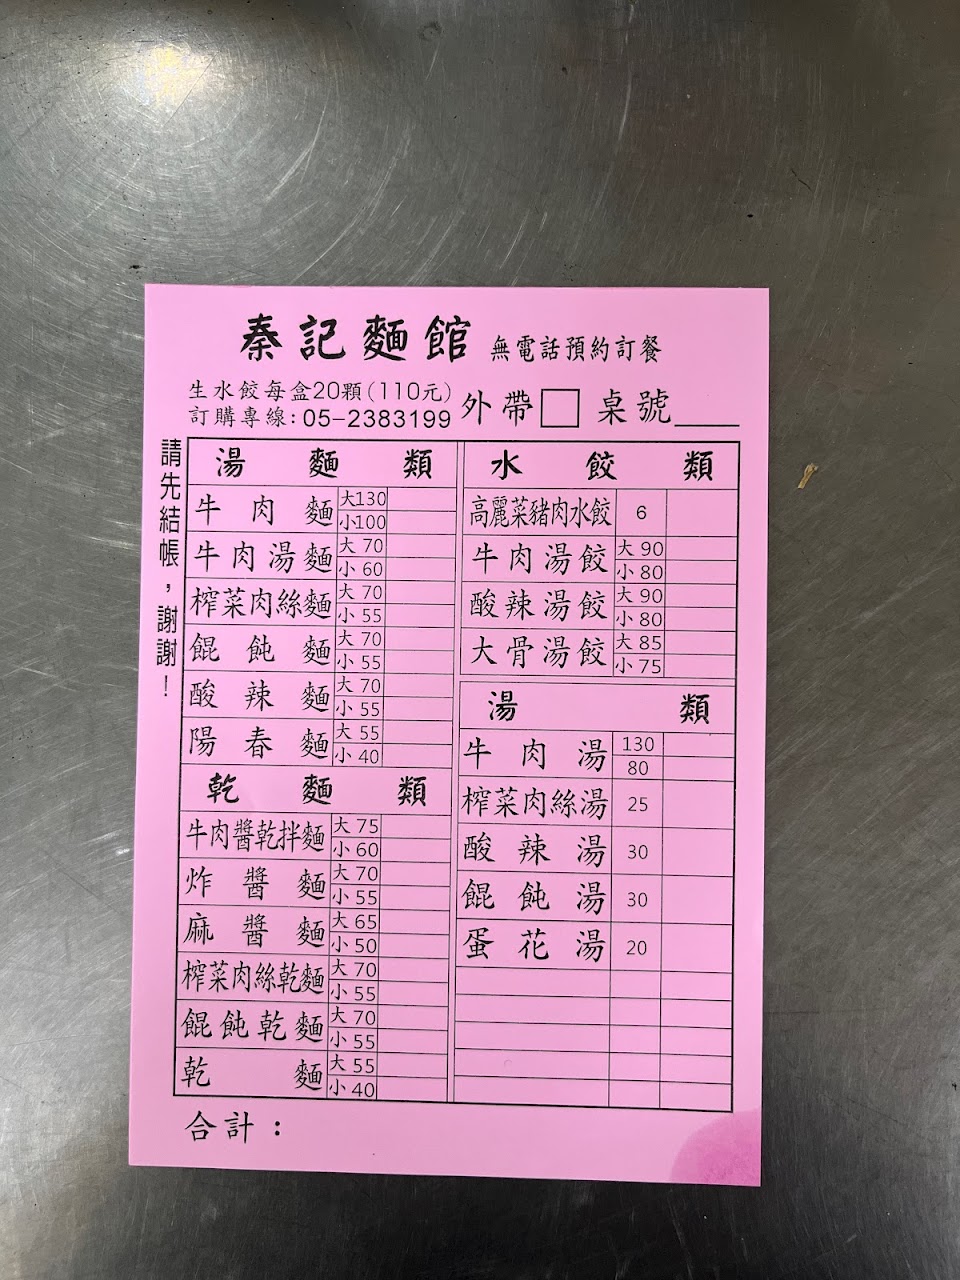 秦記麵館 無電話預約訂餐
生水餃每盒20顆(110元)
訂購專線:05-2383199
外帶 桌號
請先結帳，謝謝！
湯麵類
牛肉麵 大130 小100
牛肉湯麵 大70 小60
榨菜肉絲麵 大70 小55
餛飩麵 大70 小55
酸辣麵 大70 小55
陽春麵 大55 小40
乾麵類
牛肉醬乾拌麵 大75 小60
炸醬麵 大70 小55
麻醬麵 大65 小50
榨菜肉絲乾麵 大70 小55
餛飩乾麵 大70 小55
乾麵 大55 小40
水餃類
高麗菜豬肉水餃 6
牛肉湯餃 大90 小80
酸辣湯餃 大90 小80
大骨湯餃 大85 小75
湯類
牛肉湯 130 80
榨菜肉絲湯 25
酸辣湯 30
餛飩湯 30
蛋花湯 20
合計：